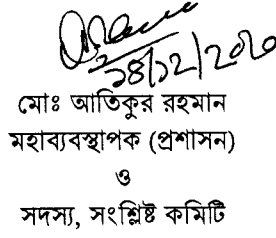 ১৪/১২/২০২০
মোঃ আতিকুর রহমান
মহাব্যবস্থাপক (প্রশাসন)
ও
সদস্য, সংশ্লিষ্ট কমিটি